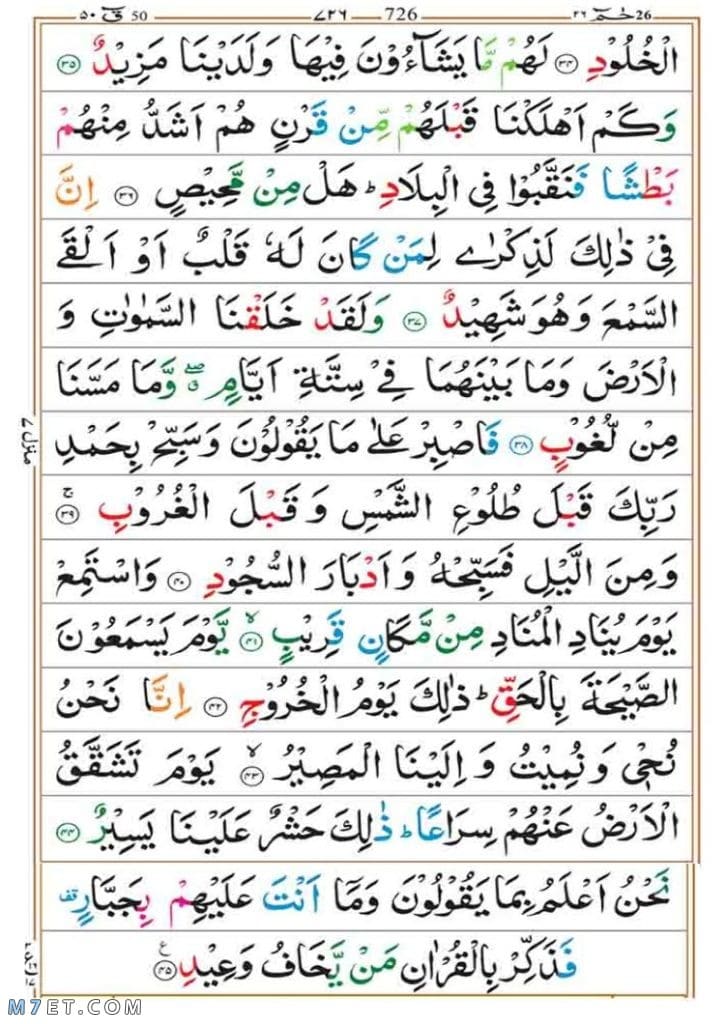 ٥٠ قٓ 50 ٧٢٦ 726 حٰمٓ 26 ٢٦
الْخُلُوْدِ ﴿۳۴﴾ لَهُمْ مَّا يَشَآءُوْنَ فِيْهَا وَلَدَيْنَا مَزِيْدٌ ﴿۳۵﴾
وَكَمْ اَهْلَكْنَا قَبْلَهُمْ مِّنْ قَرْنٍ هُمْ اَشَدُّ مِنْهُمْ
بَطْشًا فَنَقَّبُوْا فِى الْبِلَادِ ؕ هَلْ مِنْ مَّحِيْصٍ ﴿۳۶﴾ اِنَّ
فِىْ ذٰلِكَ لَذِكْرٰى لِمَنْ كَانَ لَهٗ قَلْبٌ اَوْ اَلْقَى
السَّمْعَ وَهُوَ شَهِيْدٌ ﴿۳۷﴾ وَلَقَدْ خَلَقْنَا السَّمٰوٰتِ وَ
الْاَرْضَ وَمَا بَيْنَهُمَا فِىْ سِتَّةِ اَيَّامٍ ۖ وَّمَا مَسَّنَا
مِنْ لُّغُوْبٍ ﴿۳۸﴾ فَاصْبِرْ عَلٰى مَا يَقُوْلُوْنَ وَسَبِّحْ بِحَمْدِ
رَبِّكَ قَبْلَ طُلُوْعِ الشَّمْسِ وَقَبْلَ الْغُرُوْبِ ۚ ﴿۳۹﴾
وَمِنَ الَّيْلِ فَسَبِّحْهُ وَاَدْبَارَ السُّجُوْدِ ﴿۴۰﴾ وَاسْتَمِعْ
يَوْمَ يُنَادِ الْمُنَادِ مِنْ مَّكَانٍ قَرِيْبٍ ۙ ﴿۴۱﴾ يَّوْمَ يَسْمَعُوْنَ
الصَّيْحَةَ بِالْحَقِّ ؕ ذٰلِكَ يَوْمُ الْخُرُوْجِ ﴿۴۲﴾ اِنَّا نَحْنُ
نُحْىٖ وَنُمِيْتُ وَاِلَيْنَا الْمَصِيْرُ ۙ ﴿۴۳﴾ يَوْمَ تَشَقَّقُ
الْاَرْضُ عَنْهُمْ سِرَاعًا ؕ ذٰلِكَ حَشْرٌ عَلَيْنَا يَسِيْرٌ ﴿۴۴﴾
نَحْنُ اَعْلَمُ بِمَا يَقُوْلُوْنَ وَمَاۤ اَنْتَ عَلَيْهِمْ بِجَبَّارٍ قف
فَذَكِّرْ بِالْقُرْاٰنِ مَنْ يَّخَافُ وَعِيْدِ ﴿۴۵﴾ ع
منزل ٧
M7ET.COM